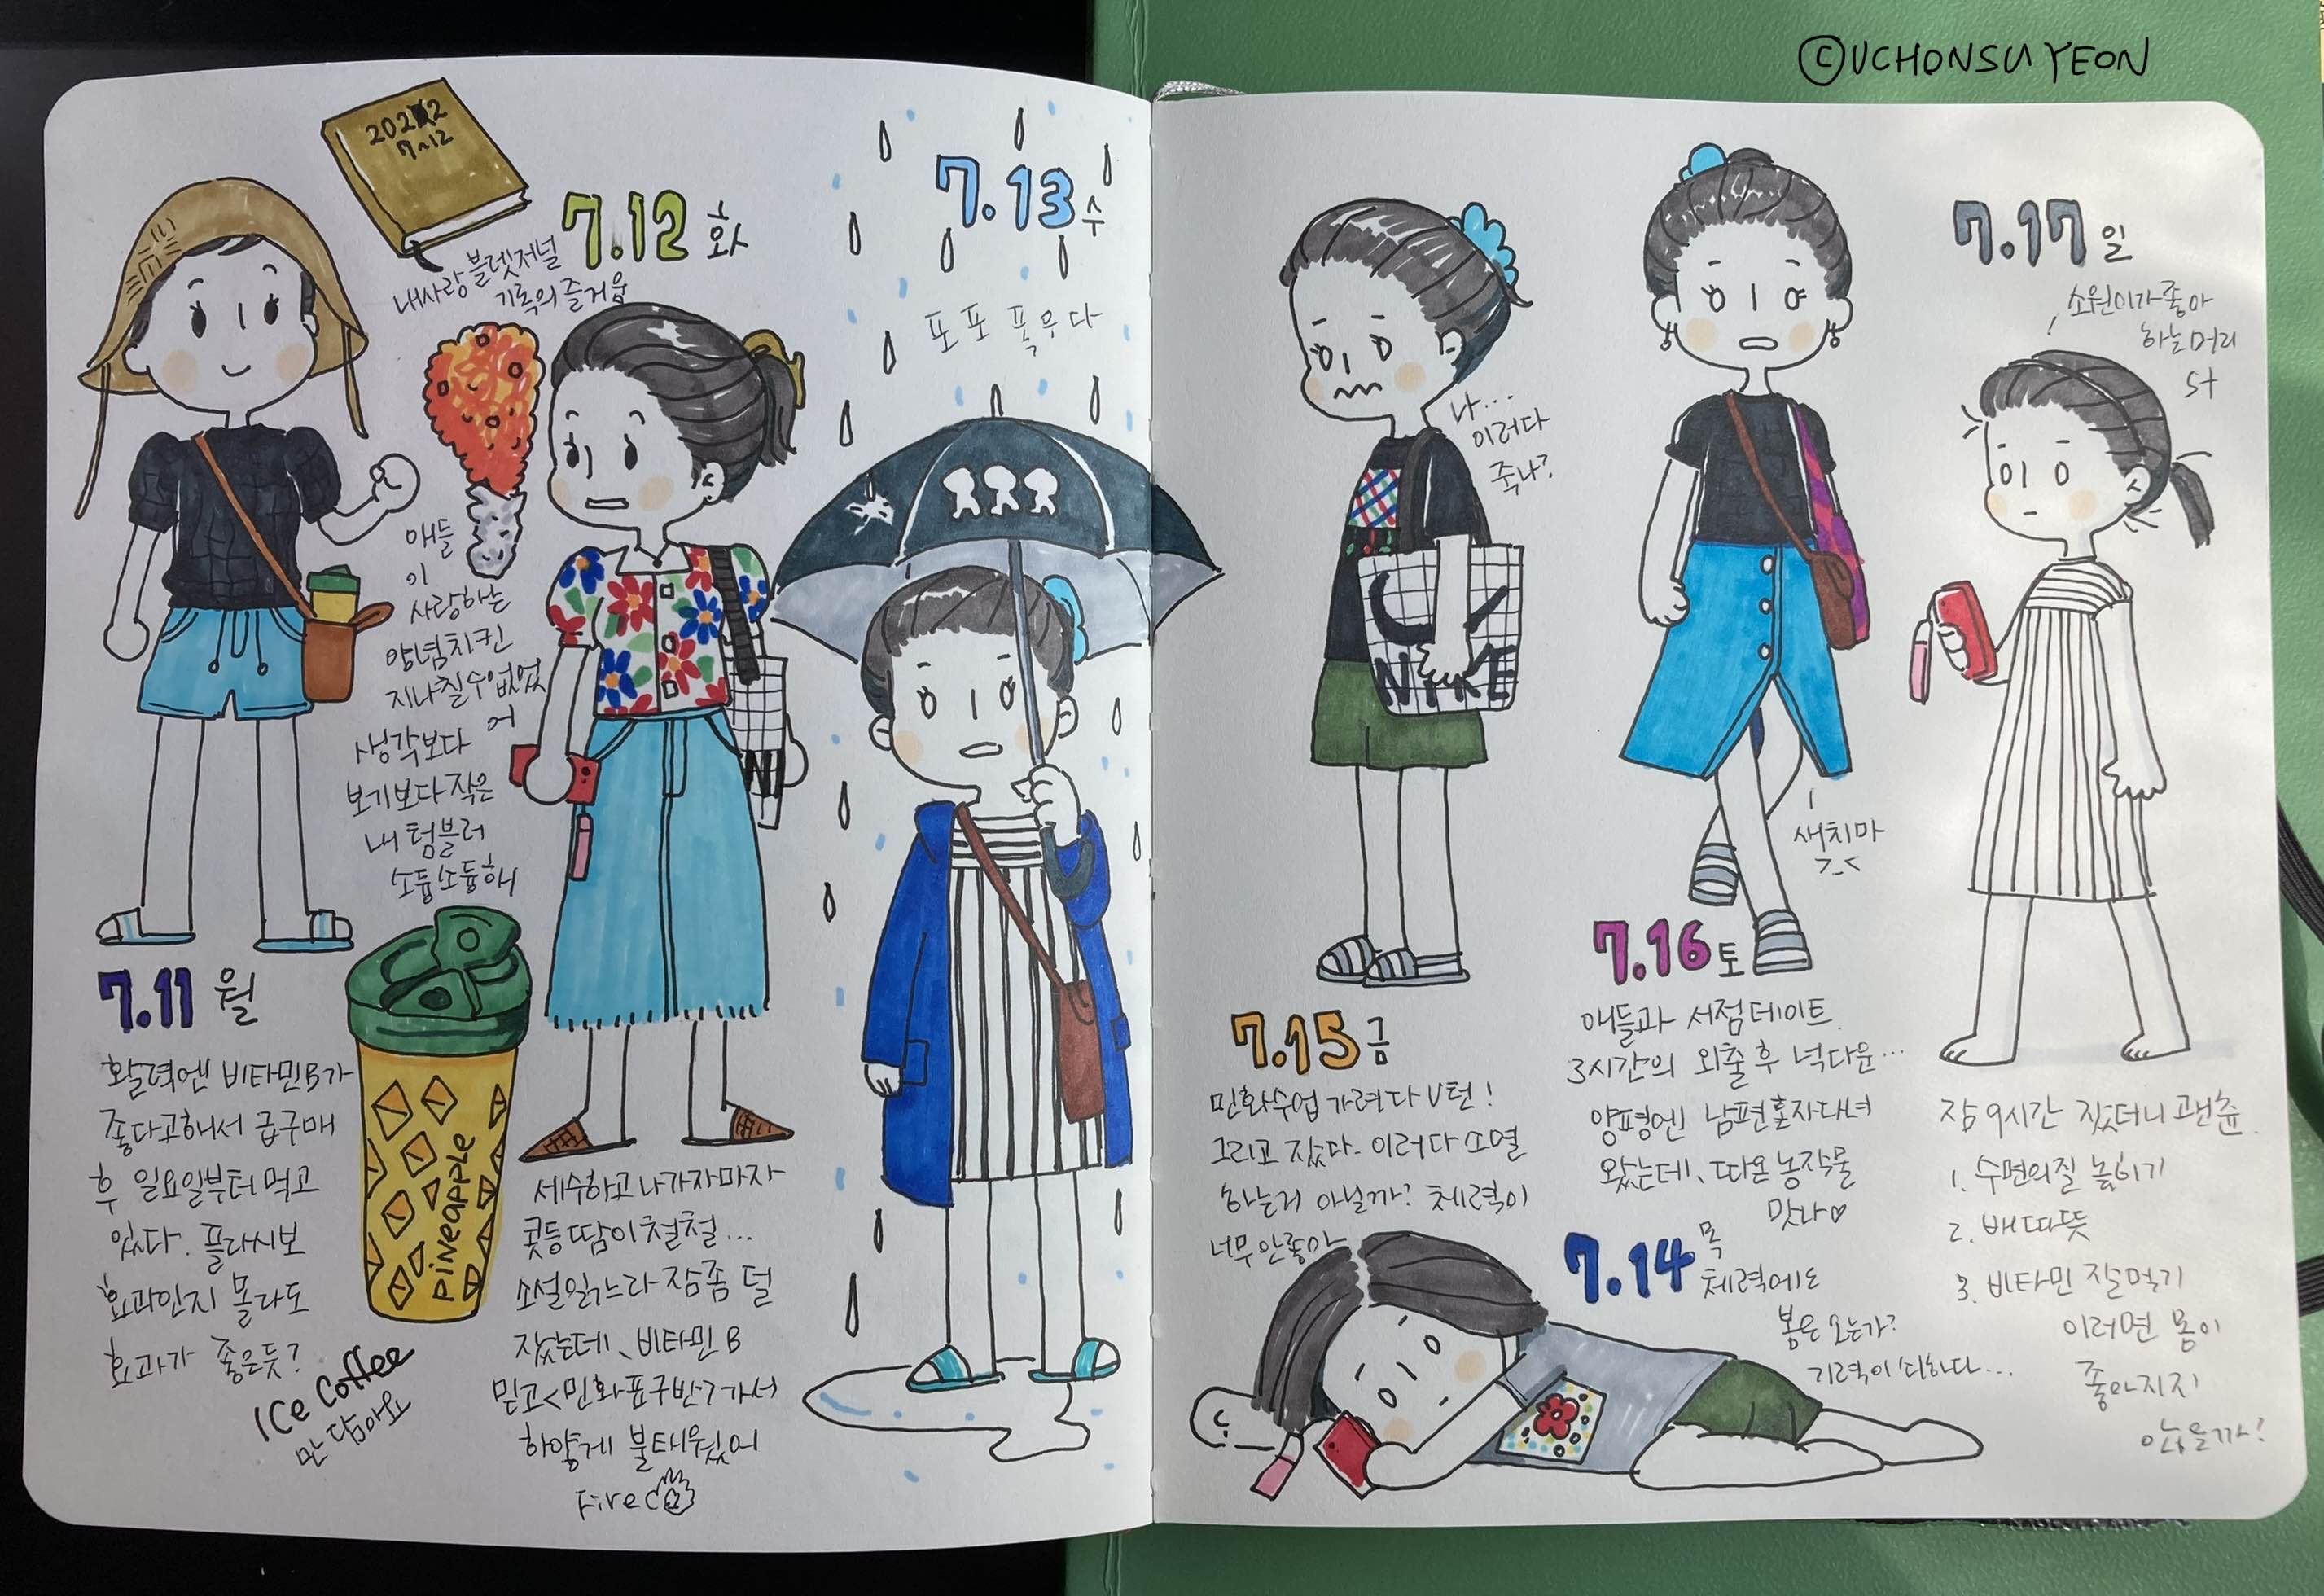 ©UCHONSUYEON
2022
7~12
내사랑 불렛저널
기록의 즐거움
7.11 월
활력엔 비타민B가
좋다고해서 급구매
후 일요일부터 먹고
있다. 플라시보
효과인지 몰라도
효과가 좋은듯?
애들
이
사랑하는
양념치킨
지나칠수없었
어
생각보다
보기보다 작은
내 텀블러
소듕소듕해
Pineapple
ICe Coffee
만 담아요
7.12 화
N
세수하고 나가자마자
콧등 땀이 철철...
소설읽느라 잠좀 덜
잤는데, 비타민B
믿고 <민화표구반> 가서
하얗게 불태웠어
Fire
7.13 수
포 포 폭우다
나...
이러다
죽나?
NIKE
7.15 금
민화수업 가려다 U턴!
그리고 잤다. 이러다 소멸
하는거 아닐까? 체력이
너무 안좋아
새치마
>_<
7.16 토
애들과 서점데이트.
3시간의 외출 후 넉다운...
양평엔 남편혼자다녀
왔는데, 따온 농작물
맛나♡
7.14 목
체력에도
봄은 오는가?
기력이 쇠하다...
7.17 일
소원이가 좋아
하는 머리
st
잠 9시간 잤더니 괜츈.
1. 수면의질 높히기
2. 배 따뜻
3. 비타민 잘먹기
이러면 몸이
좋아지지
않을까?